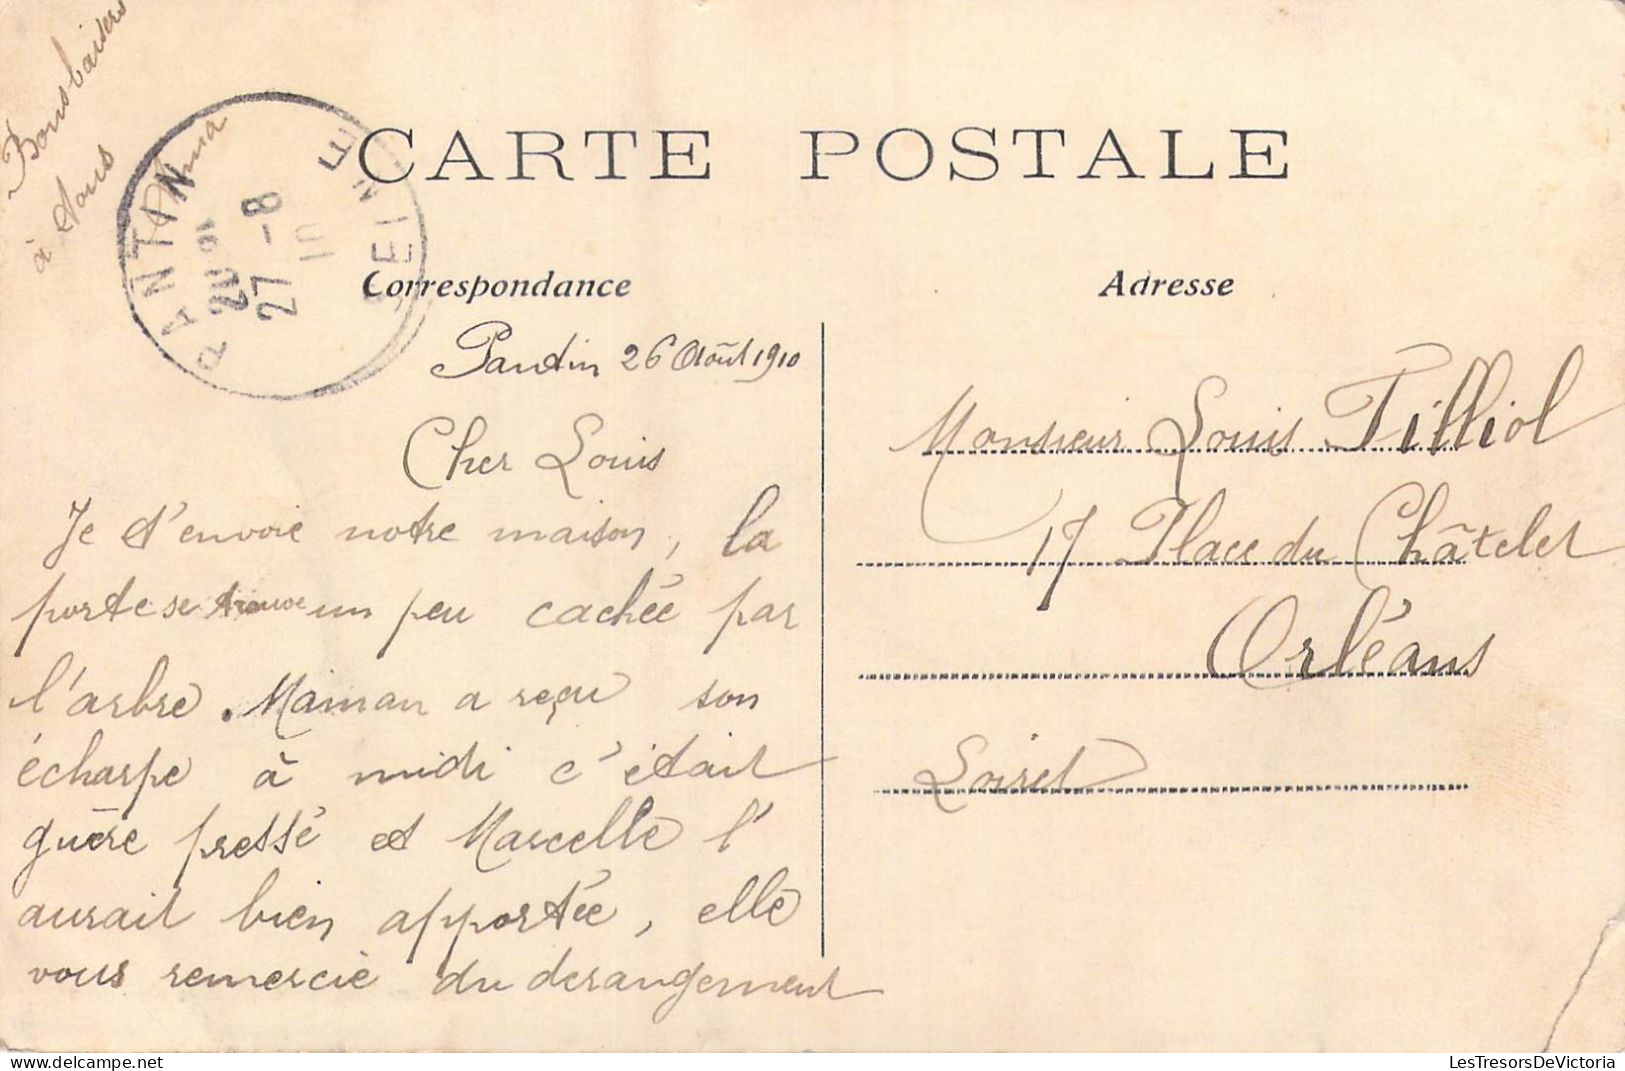 Bons baisers
à tous
CARTE POSTALE
PANTIN
SEINE
27 -8
10
Correspondance
Adresse
Pantin 26 Août 1910
Cher Louis
Je t'envoie notre maison, la
porte se trouve un peu cachée par
l'arbre. Maman a reçu son
écharpe à midi c'était
guère pressé et Marcelle l'
aurait bien apportée, elle
vous remercie du derangement
Monsieur Louis Tilliol
17 Place du Châtelet
Orléans
Loiret
LesTresorsDeVictoria